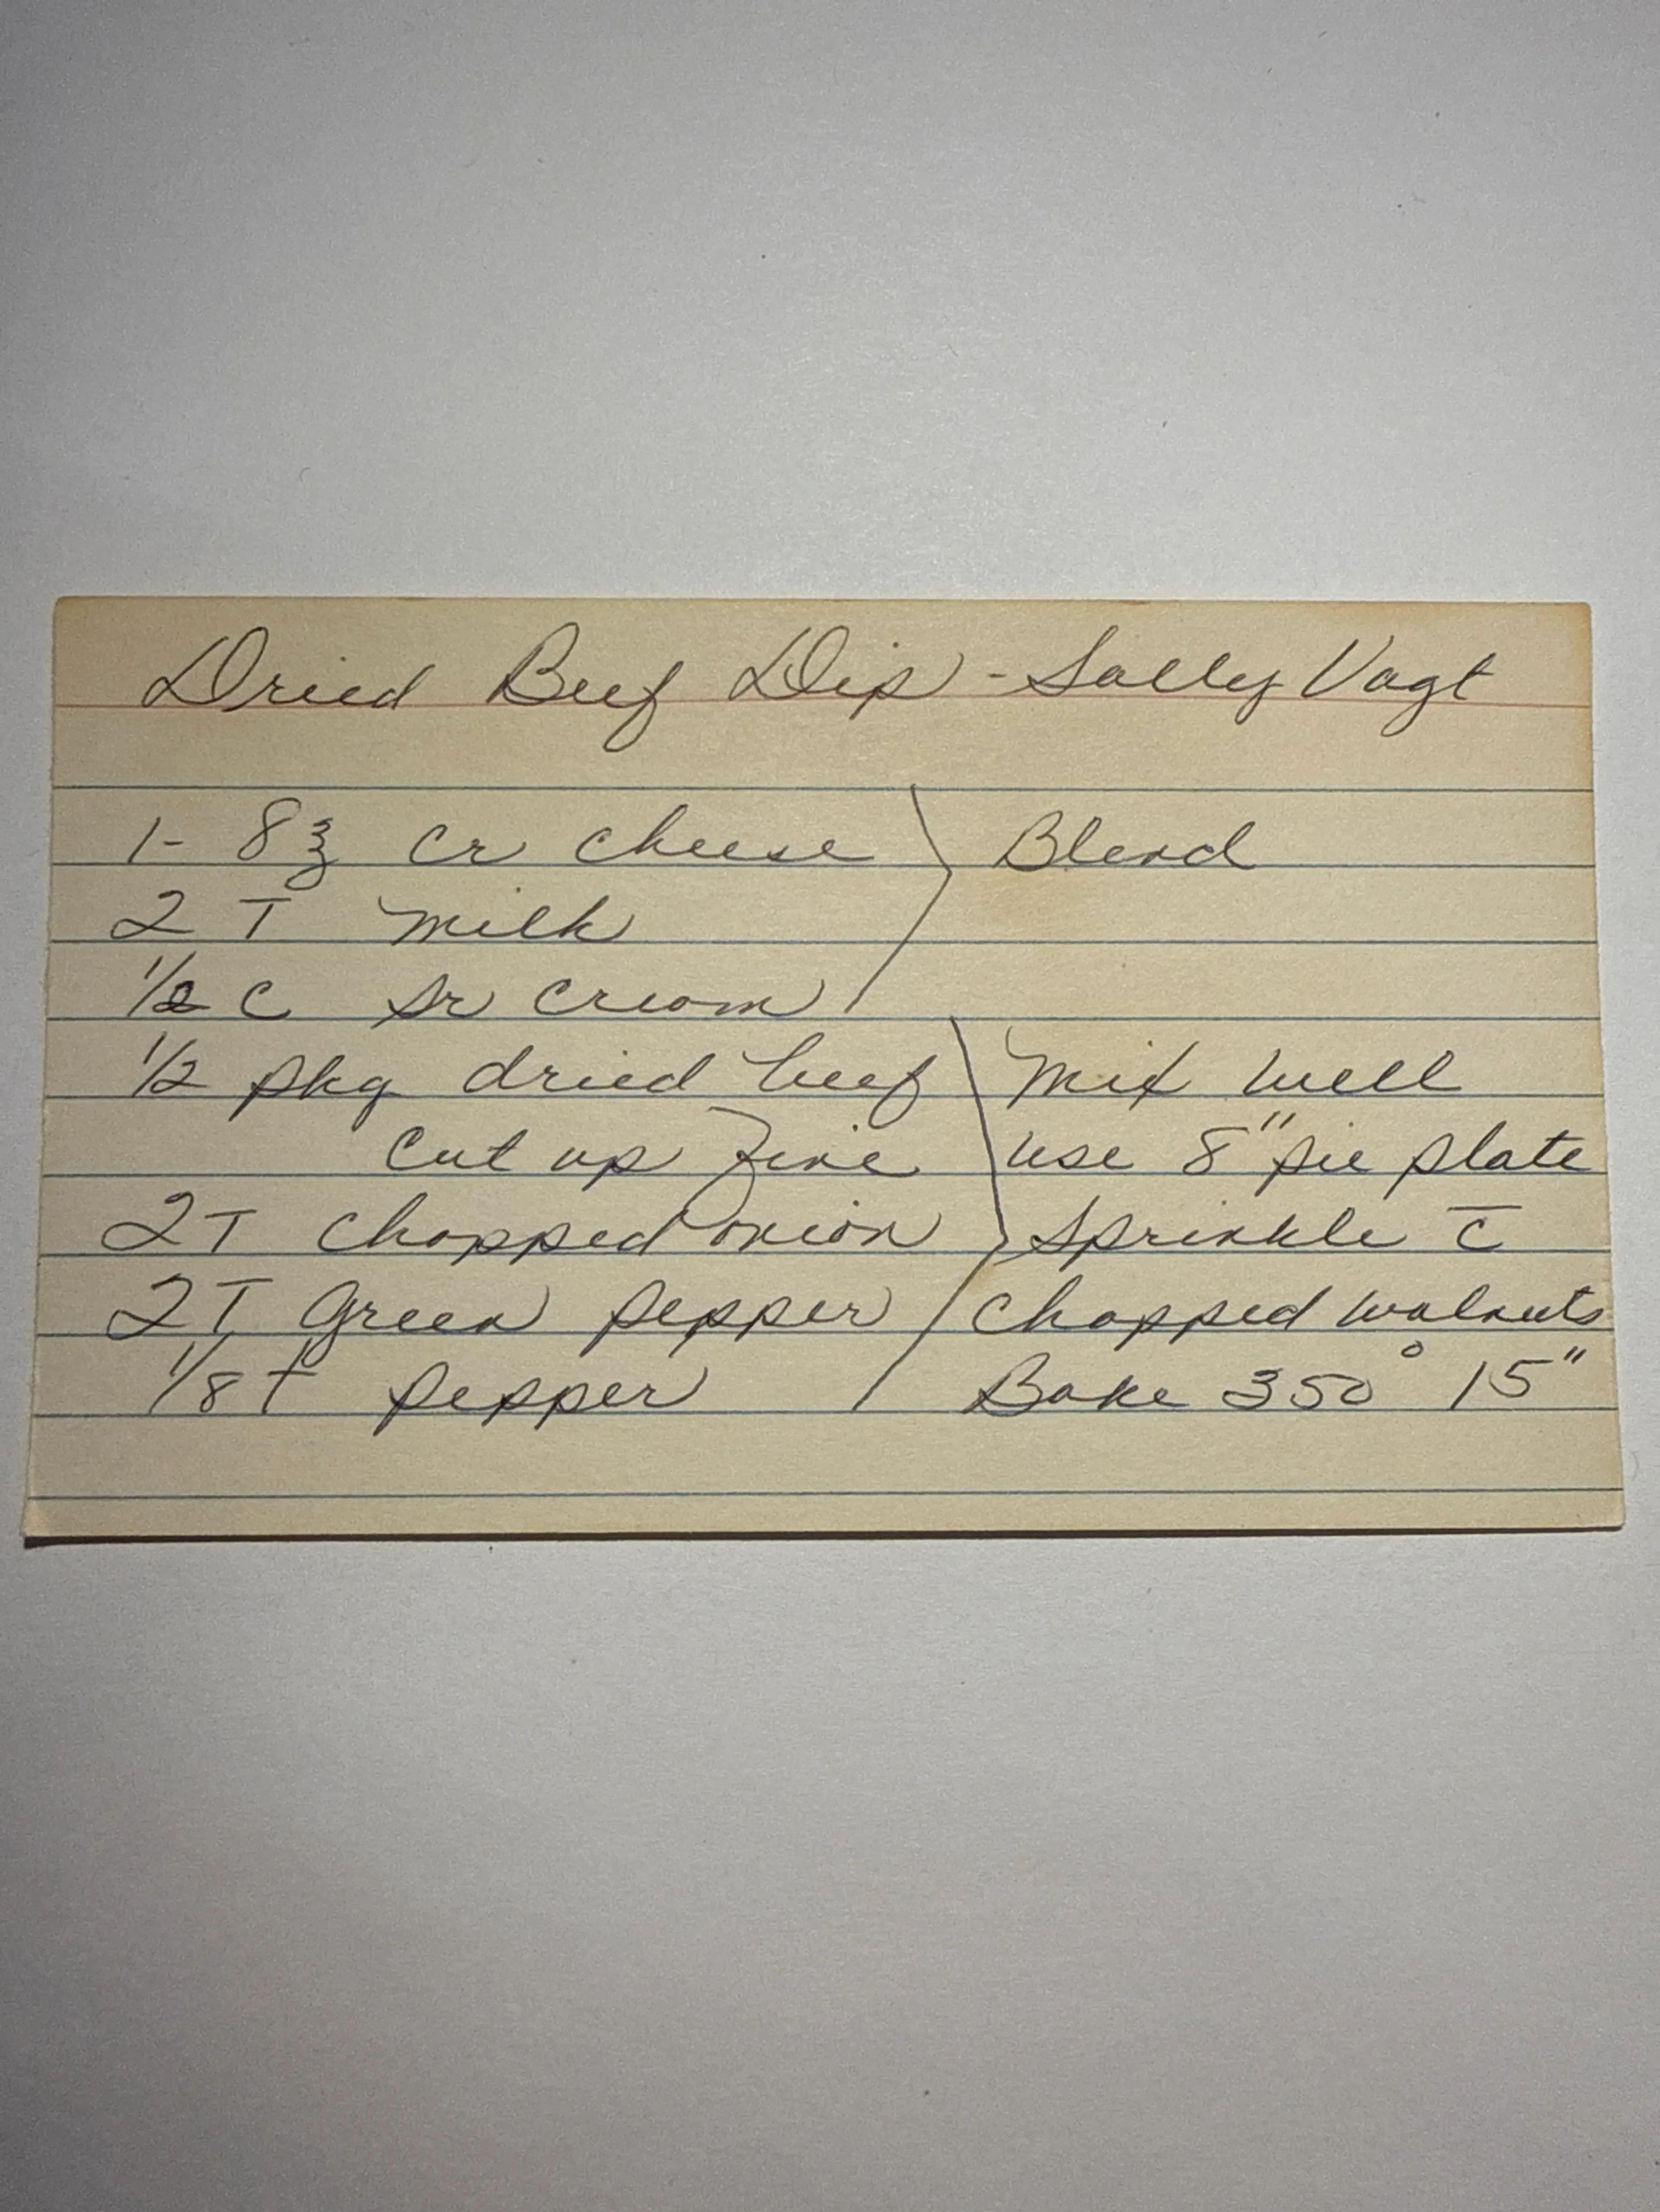 Dried Beef Dip - Sally Vagt
1- 8 ℥ cr cheese Blend
2 T milk
1/2 c sr cream
1/2 pkg dried beef mix well
cut up fine use 8" pie plate
2T chopped onion sprinkle c̅
2T Green pepper chopped walnuts
1/8 t pepper Bake 350° 15"